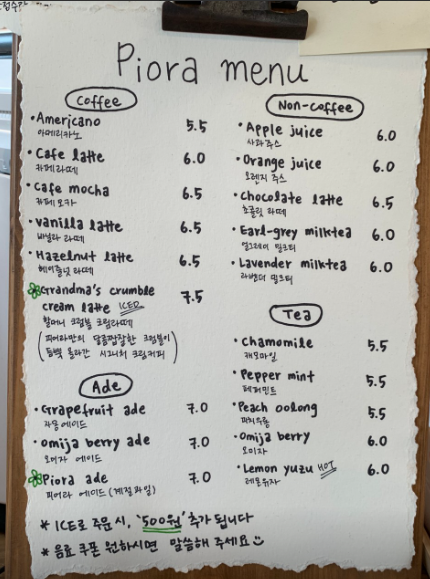 Piora menu
Coffee
• Americano 5.5
아메리카노
• Cafe latte 6.0
카페라떼
• Cafe mocha 6.5
카페 모카
• Vanilla latte 6.5
바닐라 라떼
• Hazelnut latte 6.5
헤이즐넛 라떼
Grandma's crumble 7.5
cream latte ICED
할머니 크럼블 크림라떼
(피어라만의 달콤짭잘한 크럼블이
듬뿍 올라간 시그니처 크림커피)
Ade
• Grapefruit ade 7.0
자몽에이드
• Omija berry ade 7.0
오미자 에이드
Piora ade 7.0
피어라 에이드 (계절과일)
Non-coffee
• Apple juice 6.0
사과주스
• Orange juice 6.0
오렌지 주스
• Chocolate latte 6.5
초콜릿 라떼
• Earl-grey milktea 6.0
얼그레이 밀크티
• Lavender milktea 6.0
라벤더 밀크티
Tea
• Chamomile 5.5
캐모마일
• Pepper mint 5.5
페퍼민트
• Peach oolong 5.5
피치우롱
• Omija berry 6.0
오미자
• Lemon yuzu HOT 6.0
레몬유자
* ICE로 주문 시, '500원' 추가 됩니다
* 음료 쿠폰 원하시면 말씀해 주세요